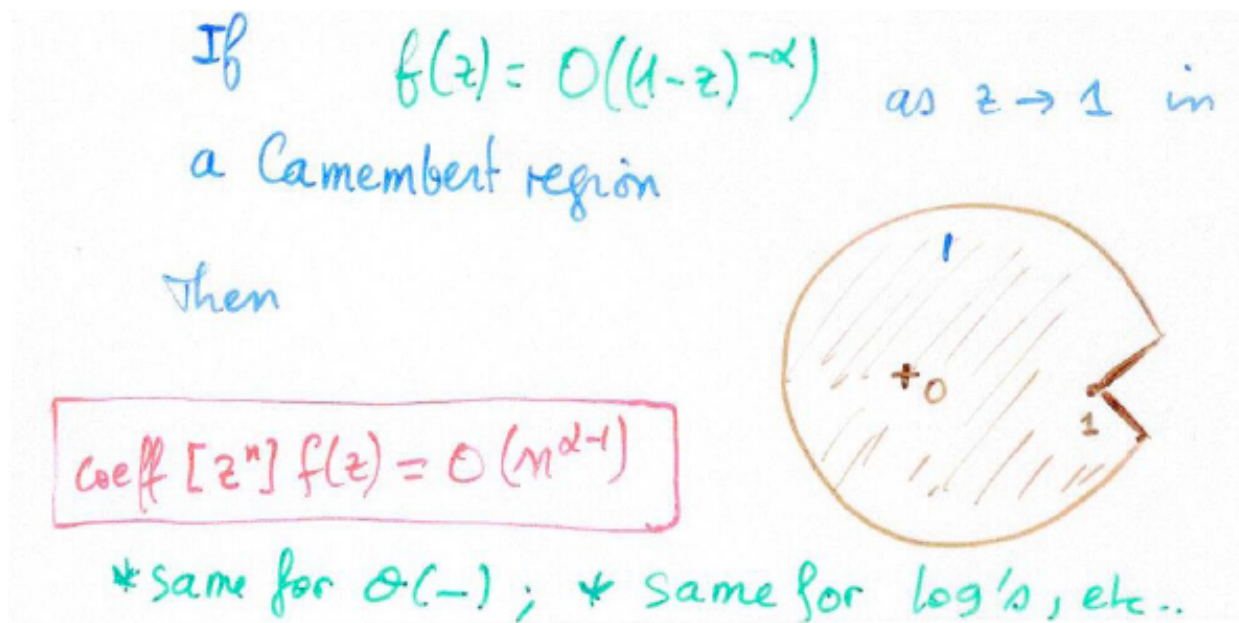 If f(z) = O((1-z)^{-α}) as z → 1 in
a Camembert region
Then
coeff [z^n] f(z) = O(n^{α-1})
+ 0
1
* same for o(-); * same for log's, etc..